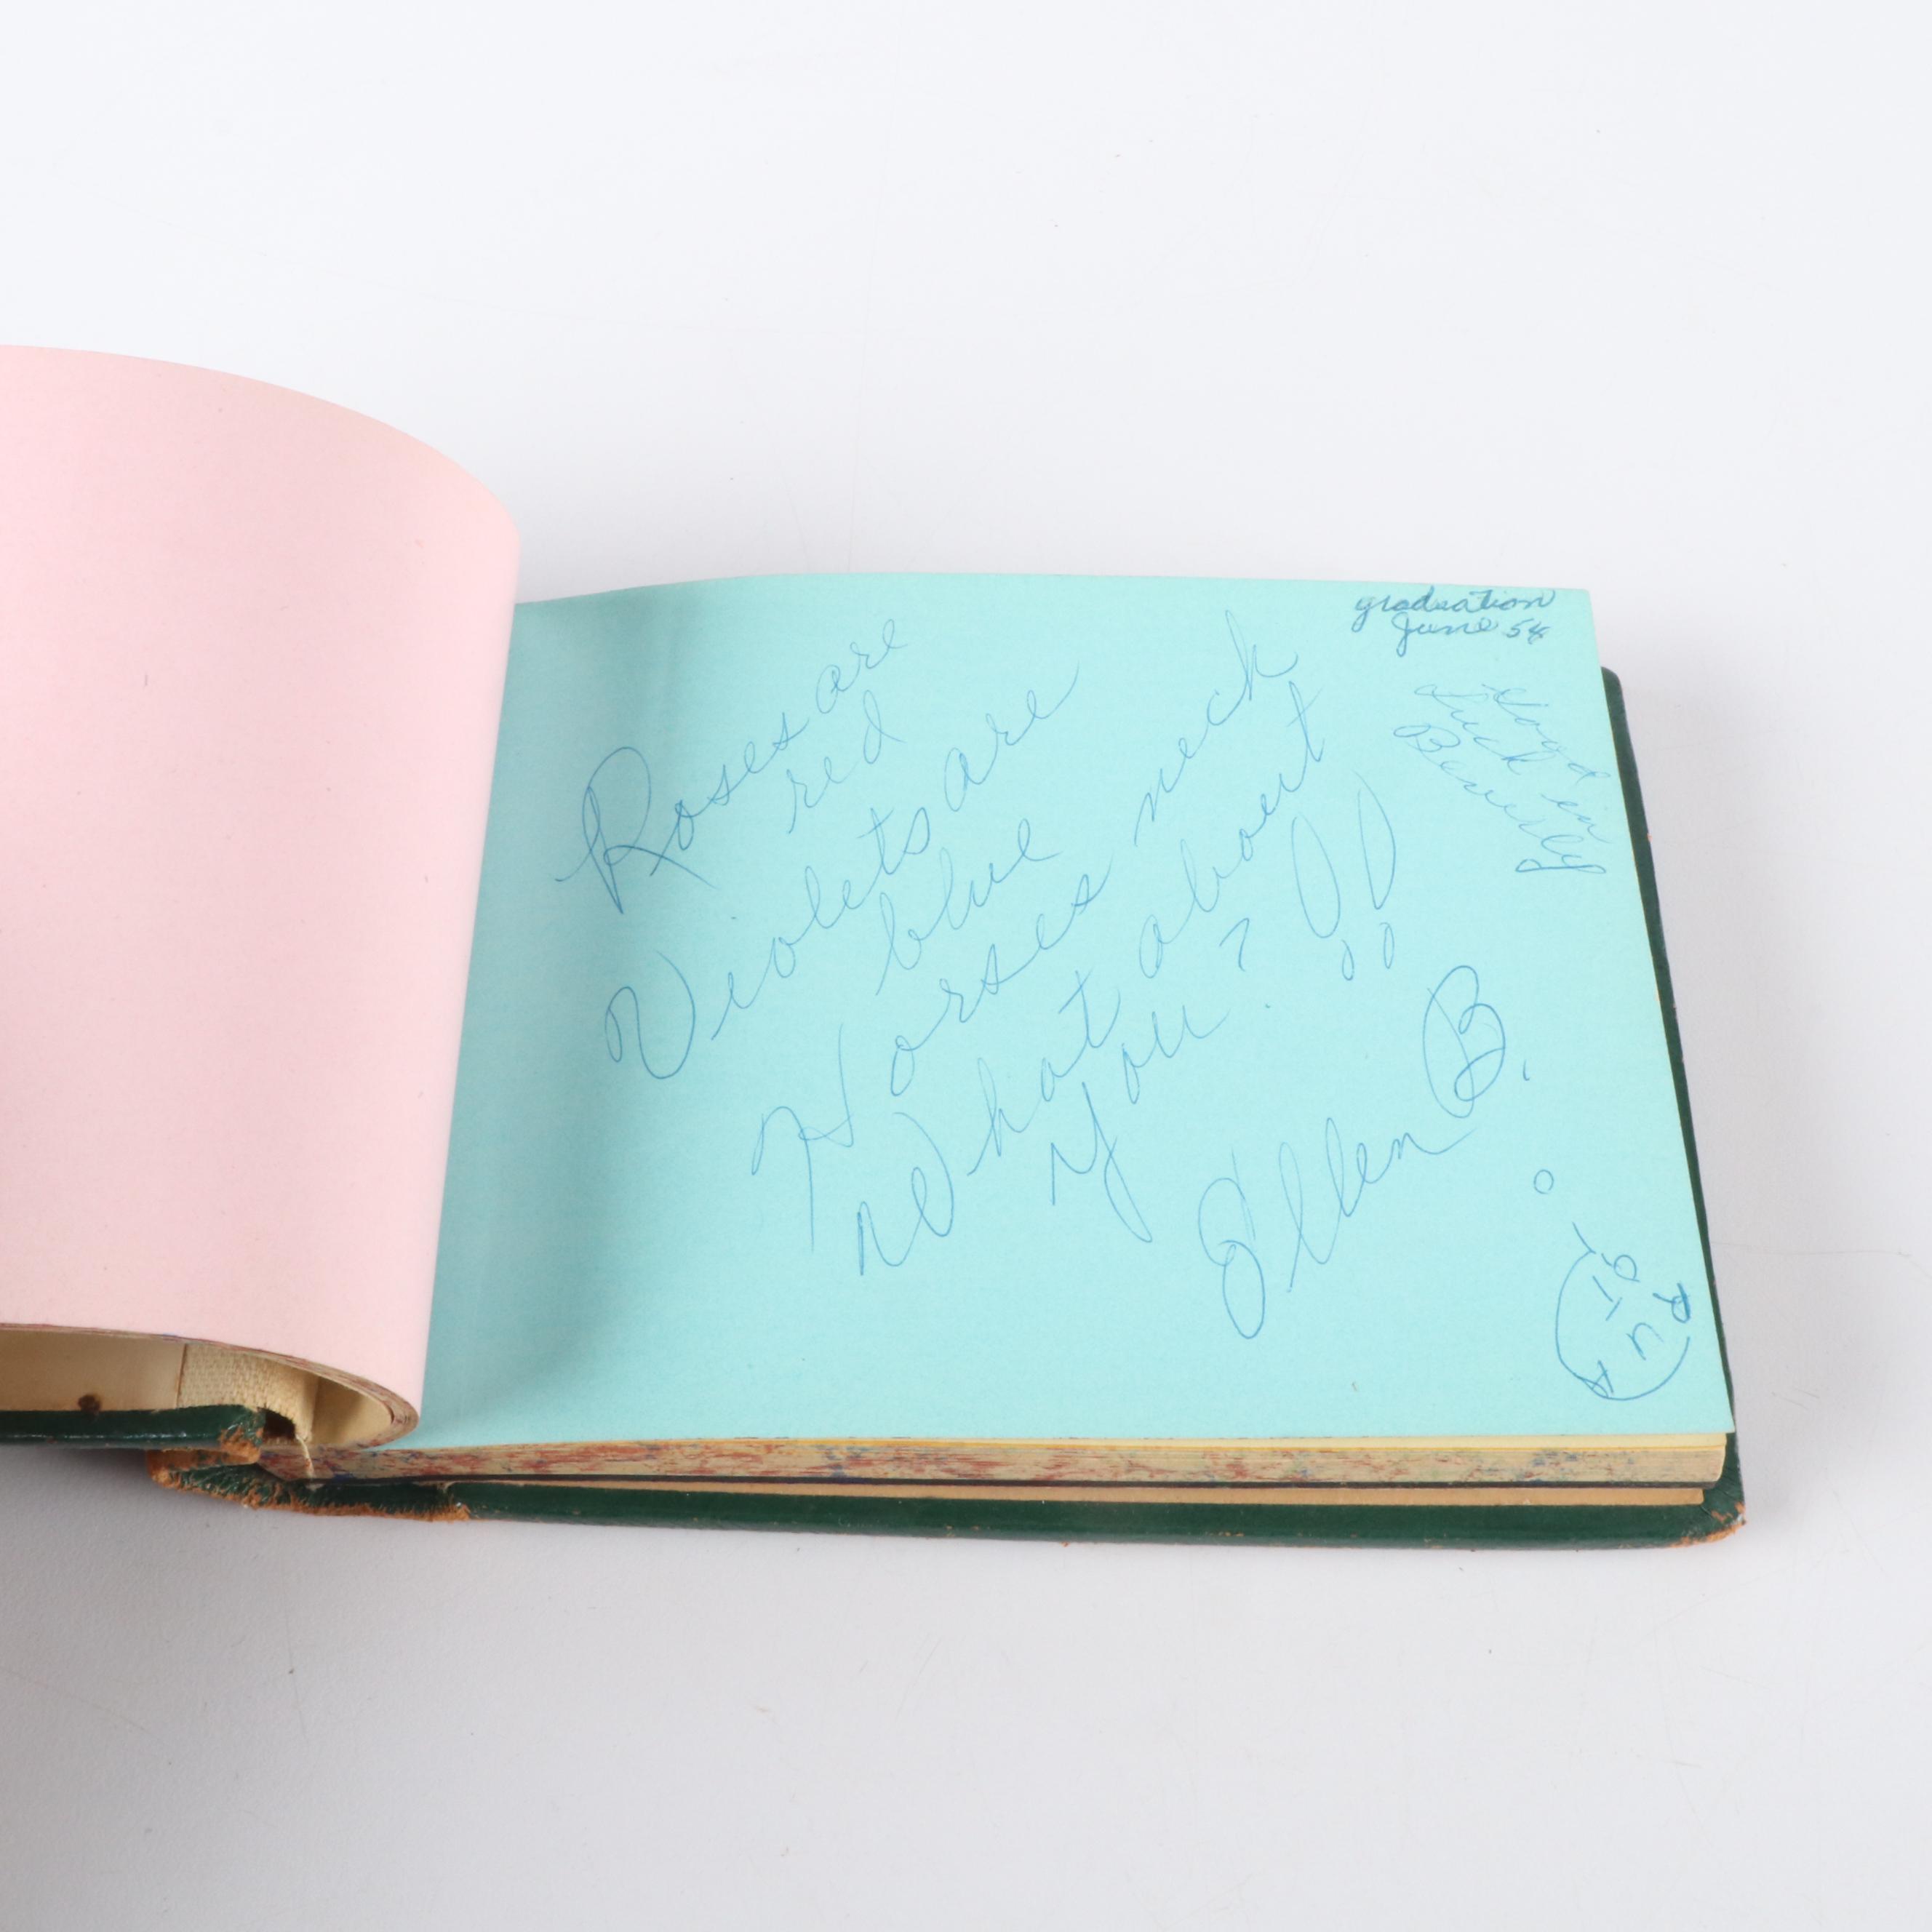 graduation
June 54
Good
luck in
Beverly
Roses are
red
Violets are
blue
Horses neck
What about
you? !!
Ellen B.